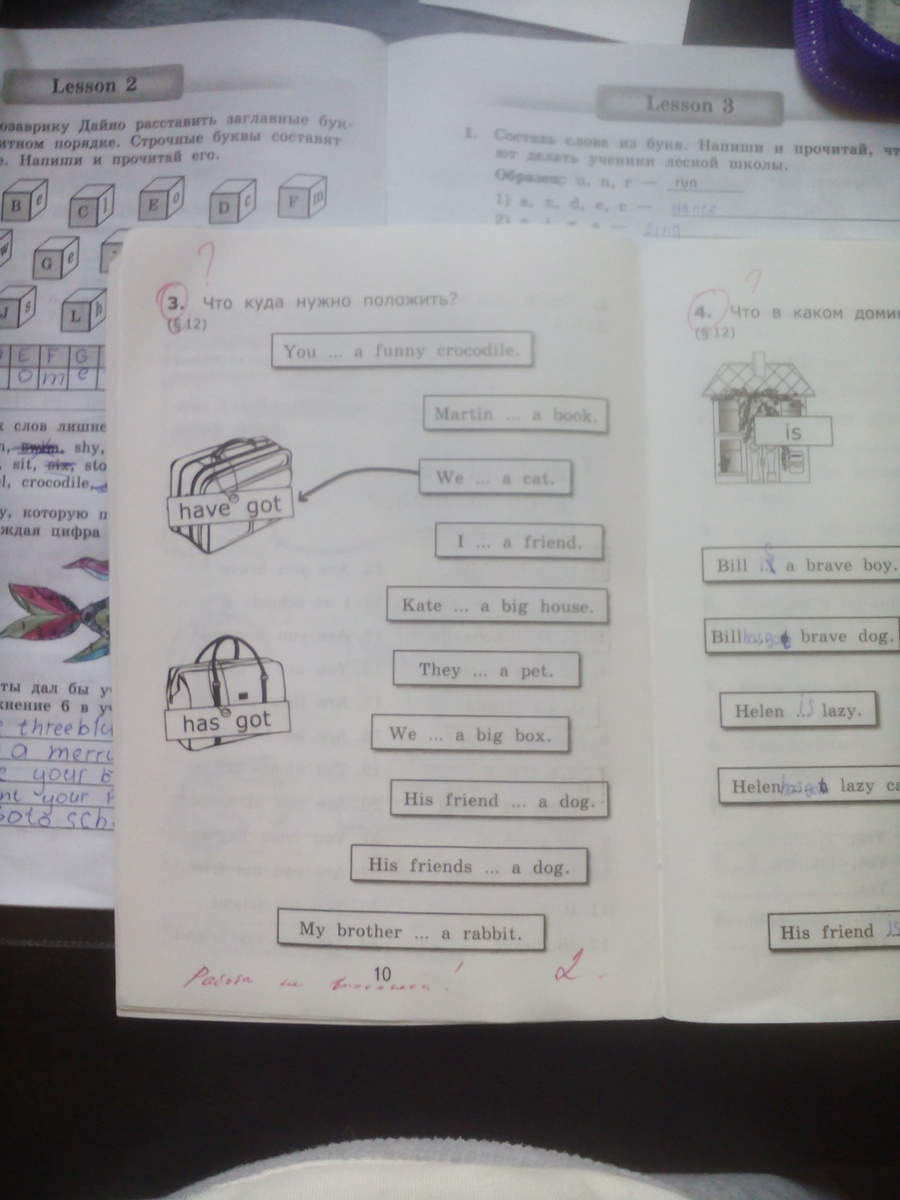 Lesson 2
озаврику Дайно расставить заглавные бук-
итном порядке. Строчные буквы составят
е. Напиши и прочитай его.
B e C l E o D c F m
w G e
J s L h
E F G
o m e
х слов лишне
swim, shy,
sit, six, sto
l, crocodile.
у, которую п
ждая цифра
ты дал бы у
жнение 6 в у
threeblu
a merry
e your b
nt your
goto sch
Lesson 3
1. Составь слова из букв. Напиши и прочитай, чт
ют делать ученики лесной школы.
Образец: u, n, r — run
1) a, n, d, e, c — dance
2) sing
?
3. Что куда нужно положить?
(§ 12)
You ... a funny crocodile.
Martin ... a book.
We ... a cat.
have got
I ... a friend.
Kate ... a big house.
They ... a pet.
has got
We ... a big box.
His friend ... a dog.
His friends ... a dog.
My brother ... a rabbit.
10
Работа не выполнена! 2
?
4. Что в каком доми
(§ 12)
is
Bill is a brave boy.
Bill has got brave dog.
Helen is lazy.
Helen has got lazy ca
His friend is